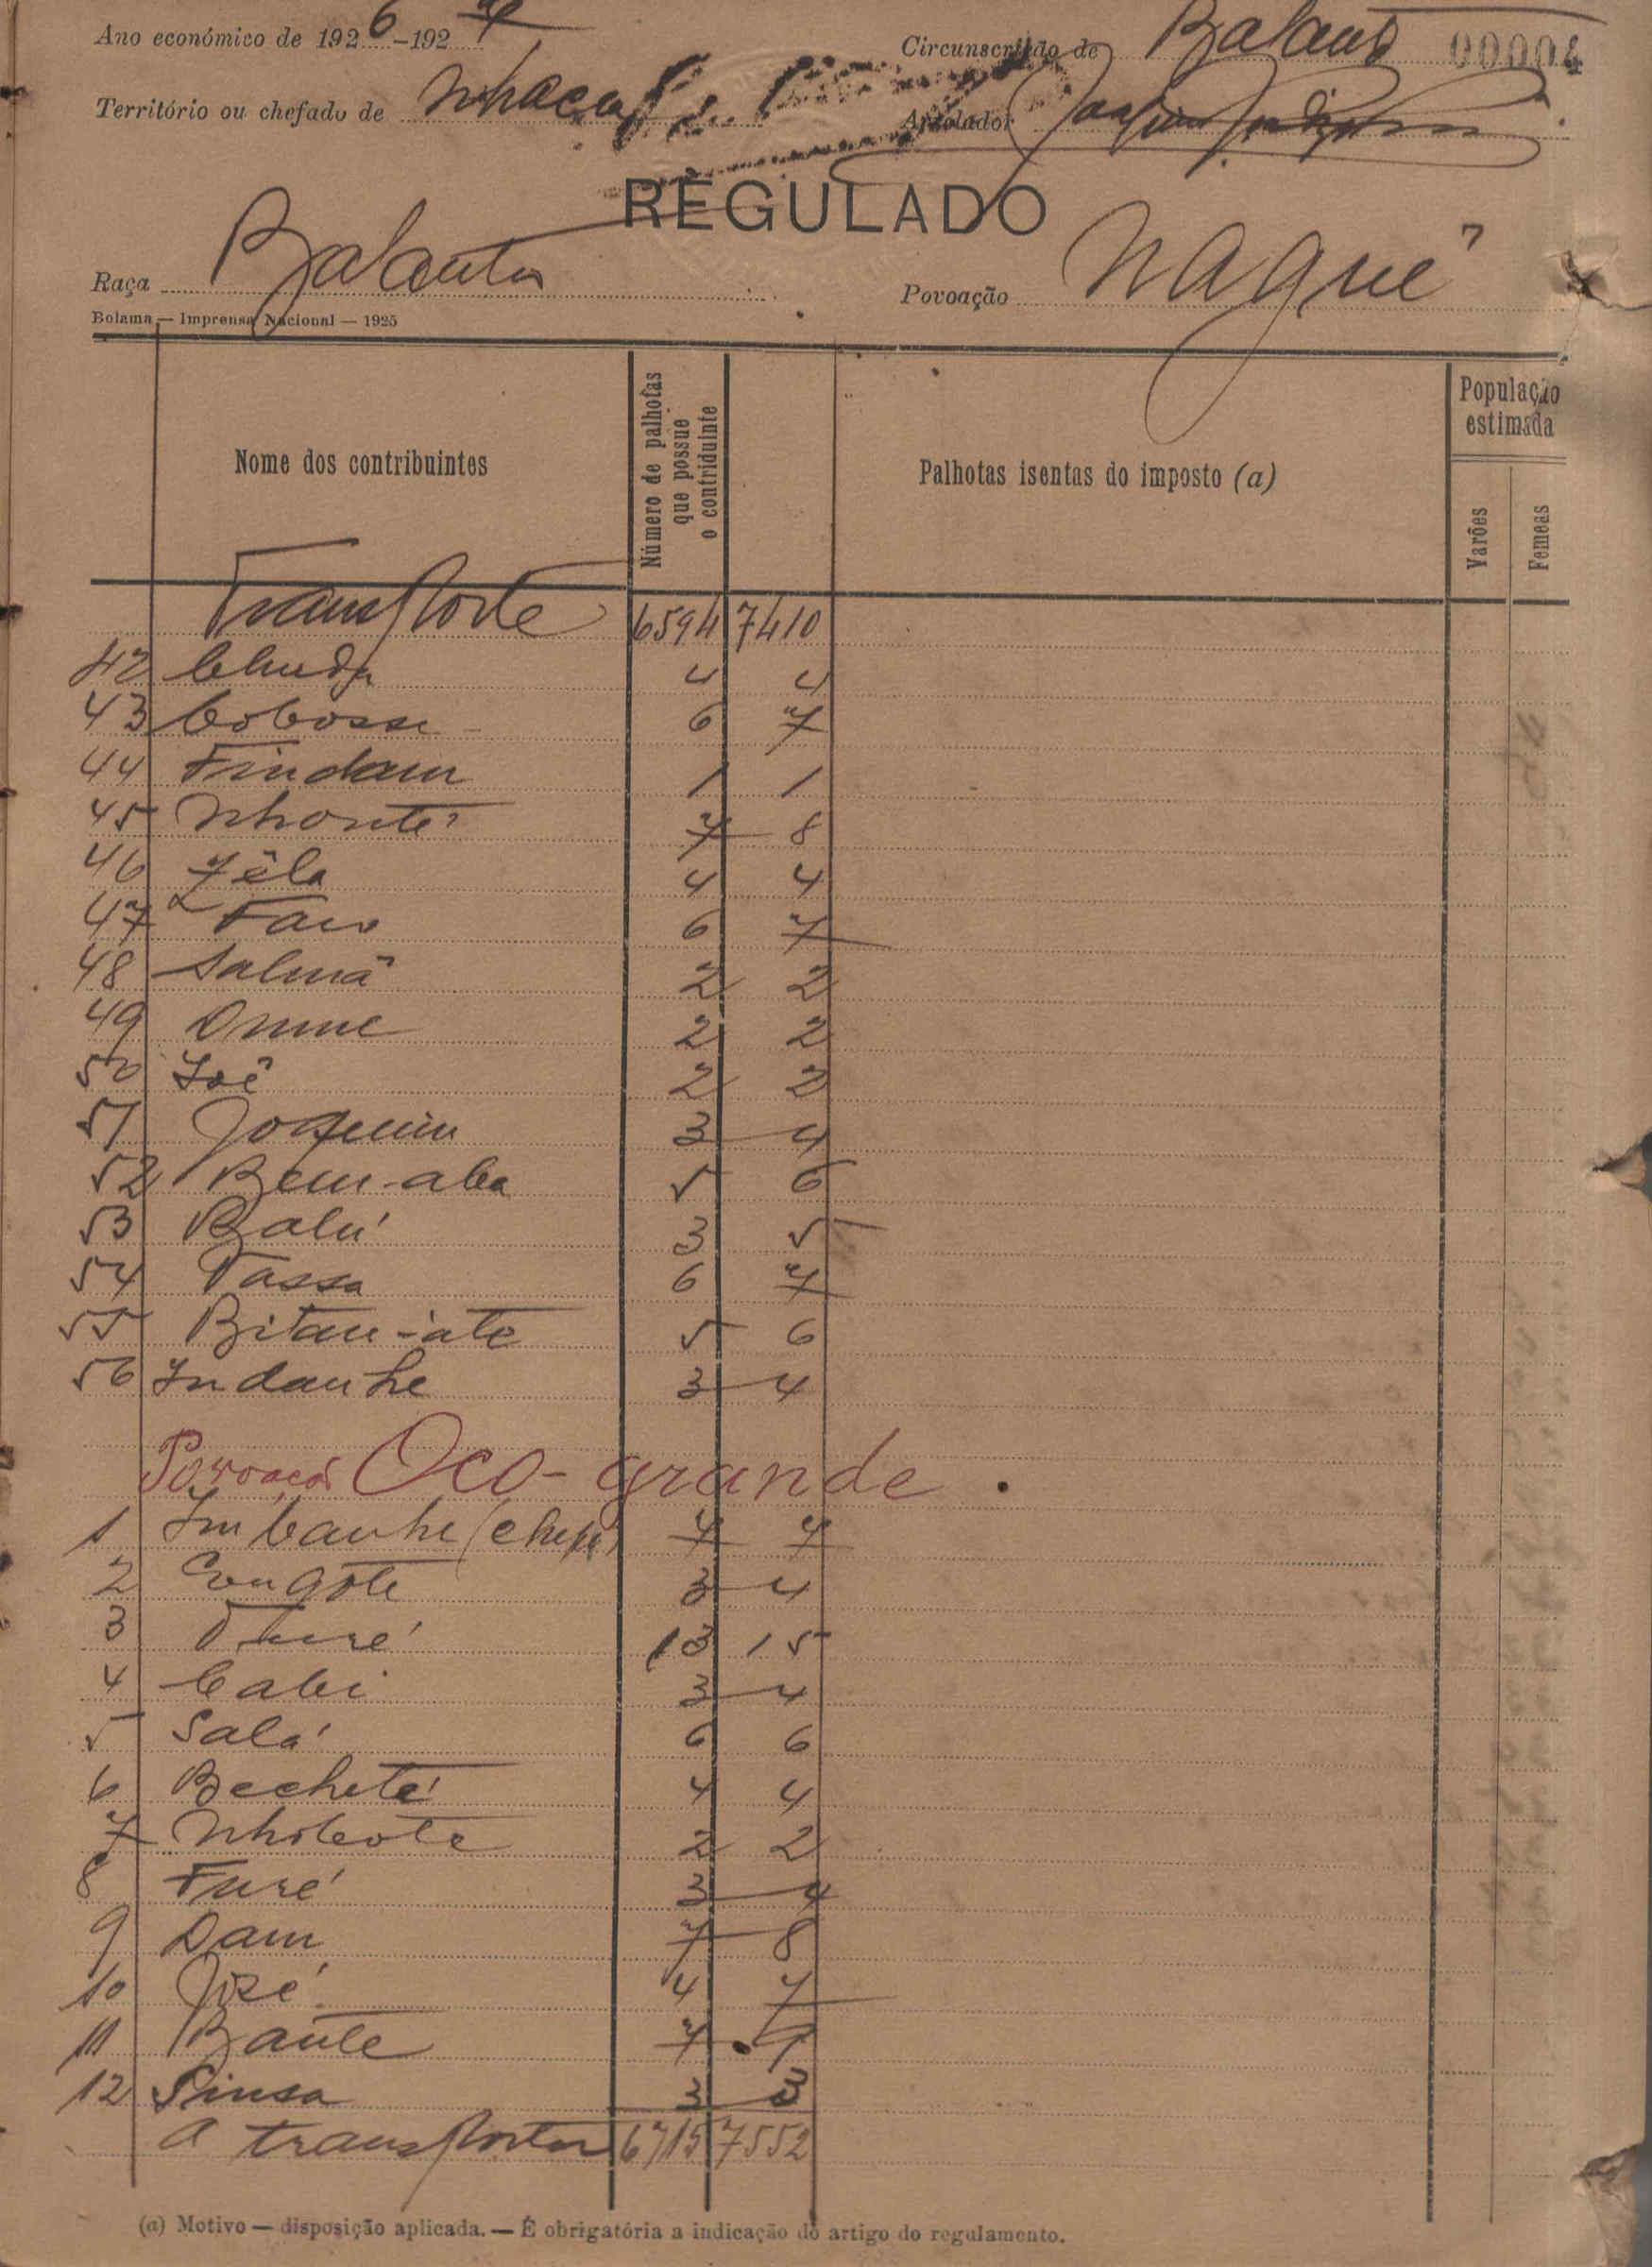 Ano económico de 1926-1927 Circunscrição de 00004
Território ou chefado de Apolador
REGULADO
Raça Balanta Povoação Nague
Bolama — Imprensa Nacional — 1925
Nome dos contribuintes
Número de palhotas que possue o contriduinte
Palhotas isentas do imposto (a)
População estimada
Varões
Femeas
Transporte 6594 7410
42 4 4
43 Cobosse 6 7
44 Findam 1 1
45 Nhonté 7 8
46 4 4
47 6 7
48 Salmã 2 2
49 2 2
50 2 2
51 Joaquim 3 4
52 Bem-aba 5 6
53 Balú 3 5
54 Tassa 6 7
55 Bitan-iate 5 6
56 Indanhe 3 4
Povoação Oco-grande.
1 Imbanhe (chefe) 7 7
2 3 4
3 13 15
4 Cabi 3 4
5 Salá 6 6
6 Becheté 4 4
7 Nhobote 2 2
8 Furé 3 4
9 Dam 7 8
10 José 4 7
11 7 9
12 Sinsa 3 3
A transportar 6715 7552
(a) Motivo — disposição aplicada. — É obrigatória a indicação do artigo do regulamento.